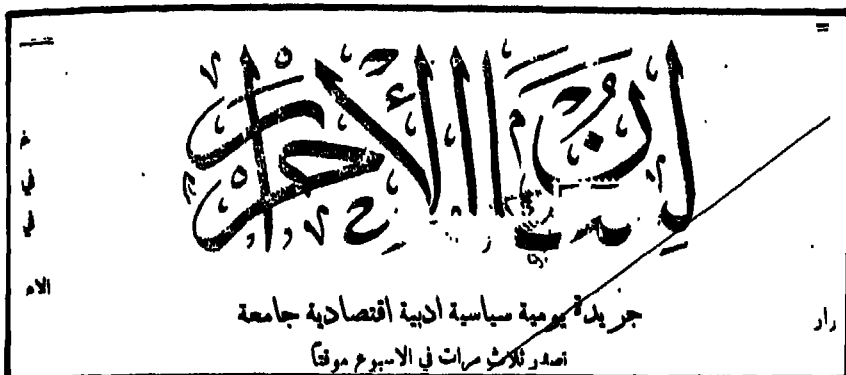 لسان الاحرار
جريدة يومية سياسية ادبية اقتصادية جامعة
تصدر ثلاث مرات في الاسبوع موقتاً